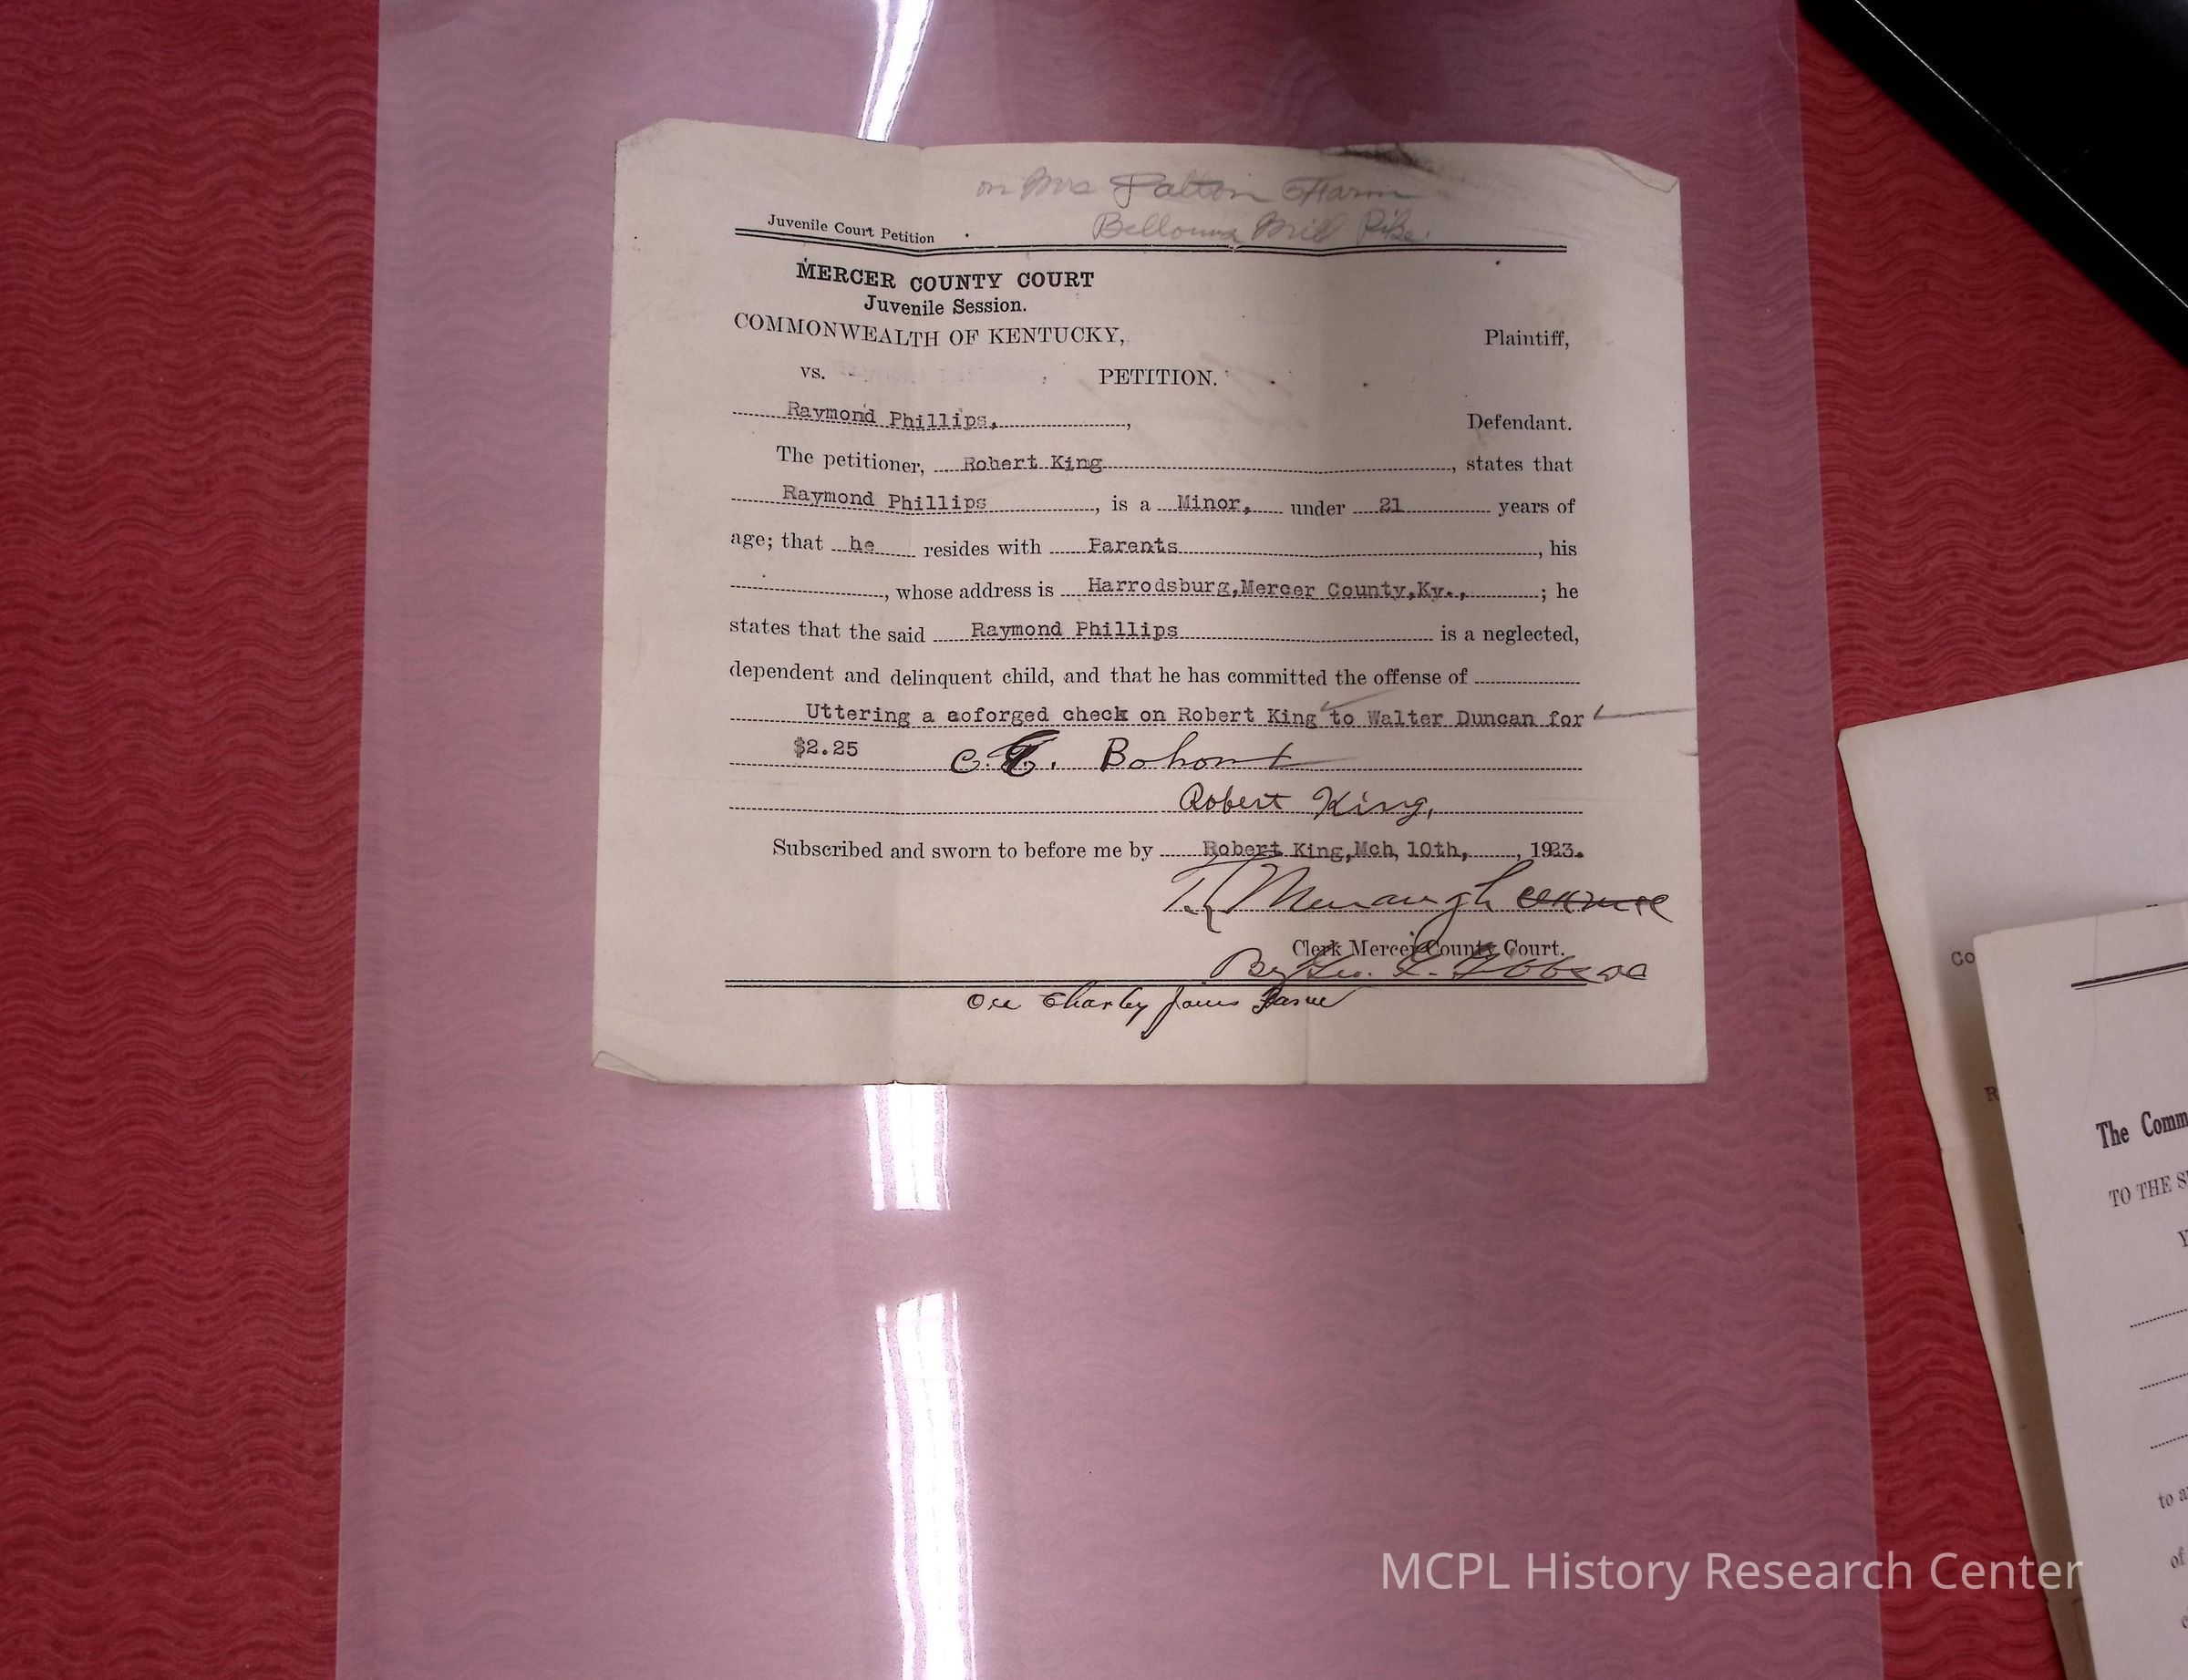 on Mrs Patton Farm
Mill Pike.
Juvenile Court Petition
MERCER COUNTY COURT
Juvenile Session.
COMMONWEALTH OF KENTUCKY, Plaintiff,
vs. PETITION.
Raymond Phillips, , Defendant.
The petitioner, Robert King , states that
Raymond Phillips , is a Minor, under 21 years of
age; that he resides with Parents , his
, whose address is Harrodsburg,Mercer County,Ky., ; he
states that the said Raymond Phillips is a neglected,
dependent and delinquent child, and that he has committed the offense of
Uttering a coforged check on Robert King to Walter Duncan for
$2.25 C. T. Bohont
Robert King,
Subscribed and sworn to before me by Robert King,Mch, 10th, , 1923.
Menaugh
Clerk Mercer County Court.
By Geo. DC
Charley
Co
R
The Comm
TO THE S
Y
to a
of
MCPL History Research Center